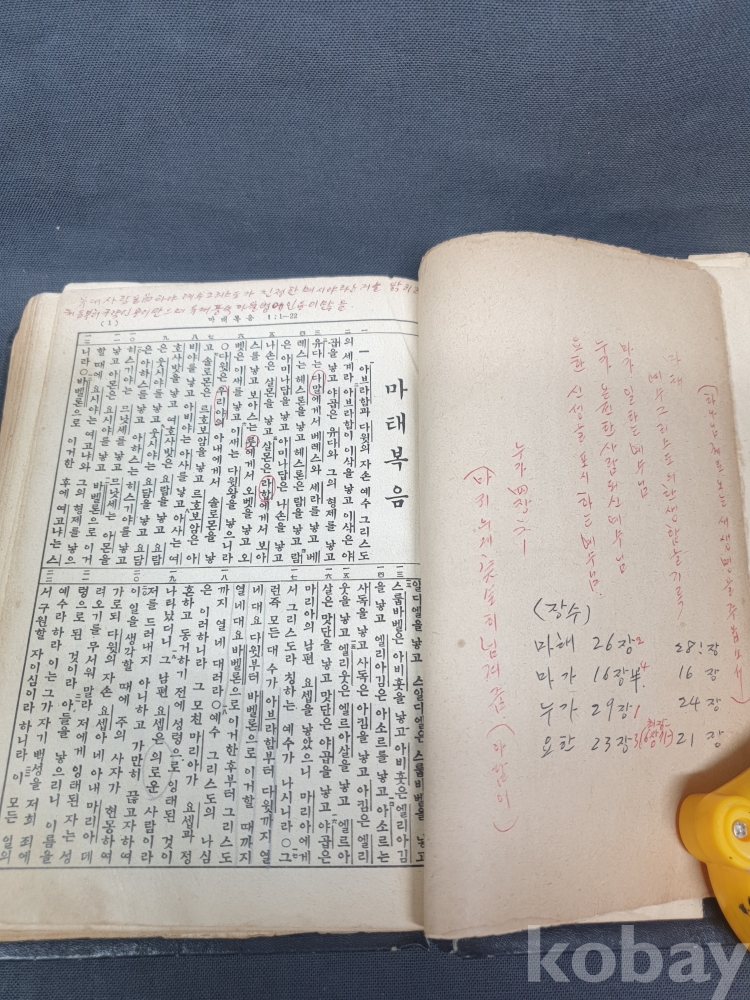 (1) 마태복음 1:1—22
마태복음
一 아브라함과 다윗의 자손 예수 그리스도
의 세계라 아브라함이 이삭을 낳고 이삭은 야
곱을 낳고 야곱은 유다와 그의 형제를 낳고
유다는 다말에게서 베레스와 세라를 낳고 베
레스는 헤스론을 낳고 헤스론은 람을 낳고 람
은 아미나답을 낳고 아미나답은 나손을 낳고
나손은 살몬을 낳고 살몬은 라합에게서 보아
스를 낳고 보아스는 룻에게서 오벳을 낳고 오
벳은 이새를 낳고 이새는 다윗왕을 낳으니라
○다윗은 우리야의 아내에게서 솔로몬을 낳
고 솔로몬은 르호보암을 낳고 르호보암은 아
비야를 낳고 아비야는 아사를 낳고 아사는 여
호사밧을 낳고 여호사밧은 요람을 낳고 요람
은 웃시야를 낳고 웃시야는 요담을 낳고 요담
은 아하스를 낳고 아하스는 히스기야를 낳고
히스기야는 므낫세를 낳고 므낫세는 아몬을
낳고 아몬은 요시야를 낳고 바벨론으로 이거
할 때에 요시야는 여고냐와 그의 형제를 낳으
니라 ○바벨론으로 이거한 후에 여고냐는 스
알디엘을 낳고 스알디엘은 스룹바벨을 낳고
스룹바벨은 아비훗을 낳고 아비훗은 엘리아김
을 낳고 엘리아김은 아소르를 낳고 아소르는
사독을 낳고 사독은 아킴을 낳고 아킴은 엘리
웃을 낳고 엘리웃은 엘르아살을 낳고 엘르아
살은 맛단을 낳고 맛단은 야곱을 낳고 야곱은
마리아의 남편 요셉을 낳았으니 마리아에게
서 그리스도라 칭하는 예수가 나시니라 ○그
런즉 모든 대 수가 아브라함부터 다윗까지 열
네 대요 다윗부터 바벨론으로 이거할 때까지
열네 대요 바벨론으로 이거한 후부터 그리스도
까지 열네 대러라 ○예수 그리스도의 나심
은 이러하니라 그 모친 마리아가 요셉과 정
혼하고 동거하기 전에 성령으로 잉태된 것이
나타났더니 그 남편 요셉은 의로운 사람이라
저를 드러내지 아니하고 가만히 끊고자하여
이 일을 생각할 때에 주의 사자가 현몽하여
가로되 다윗의 자손 요셉아 네 아내 마리아 데
려오기를 무서워 말라 저에게 잉태된 자는 성
령으로 된 것이라 아들을 낳으리니 이름을
예수라 하라 이는 그가 자기 백성을 저희 죄에
서 구원할 자이심이라 하니라 이 모든 일의
마태 예수 그리스도의 탄생함을 기록
마가 일하는 예수님
누가 온전한 사람되신 예수님
요한 신성을 표시하는 예수님
누가 四장
(장수)
마태 26장 2 28장
마가 16장부 4 16 장
누가 29장 1 24 장
요한 23장 3 21 장
kobay